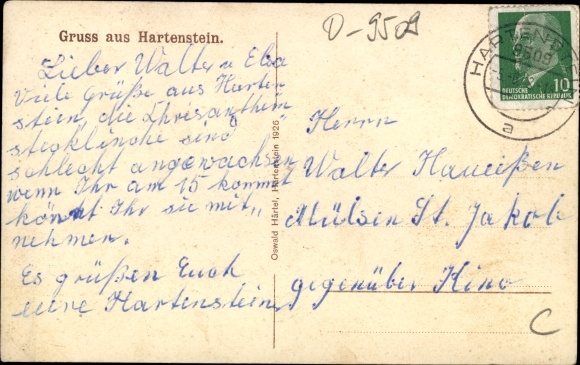 D-9509
Gruss aus Hartenstein.
Lieber Walter u Elsa
Viele Grüße aus Harten-
stein, die Chrisanthem
stecklinche sind
schlecht angewachsen
wenn Ihr am 15 kommt
könnt Ihr sie mit"
nehmen.
Es grüßen Euch
eure Hartenstein
Oswald Härtel, Hartenstein 1926
HARTENSTEIN
9509
a
10
DEUTSCHE
DEMOKRATISCHE REPUBLIK
Herrn
Walter
Mülsen St. Jakob
gegenüber Kino
C